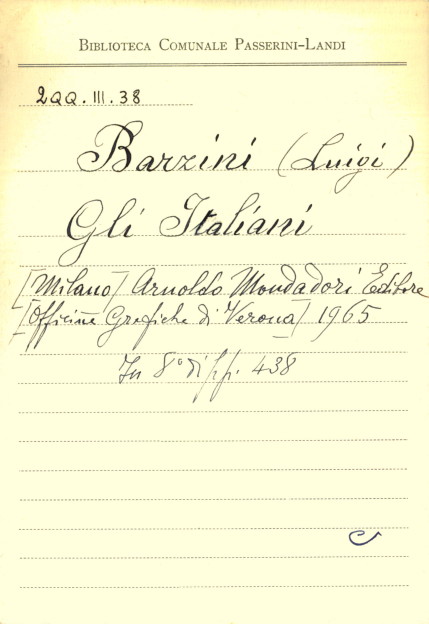 BIBLIOTECA COMUNALE PASSERINI-LANDI
2QQ.III.38
Barzini (Luigi)
Gli Italiani
[Milano] Arnoldo Mondadori Editore
[Officine Grafiche di Verona] 1965
In 8° di pp. 438
C